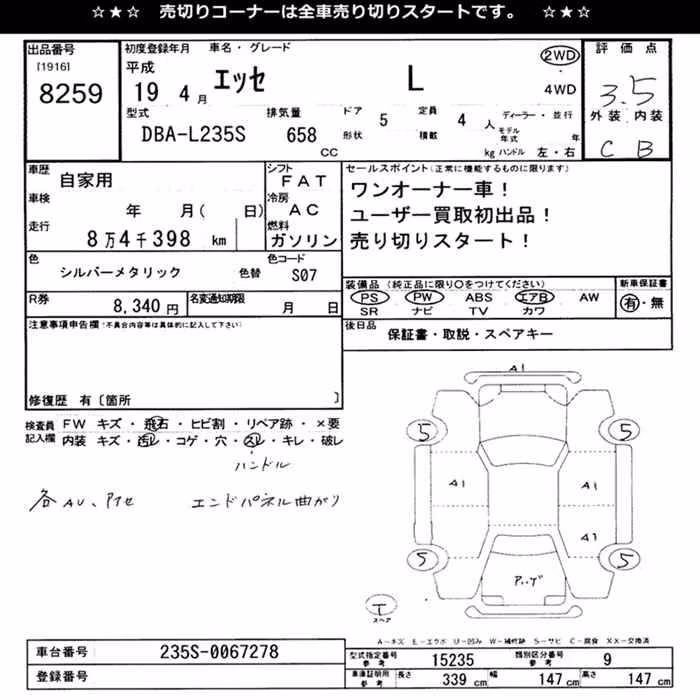 ☆★☆ 売切りコーナーは全車売り切りスタートです。 ☆★☆
出品番号 初度登録年月 車名・グレード 2WD 評価点
[1916] 平成 エッセ L
8259 19 4 月 4WD 3.5
型式 排気量 ドア 5 定員 4 人 ディーラー・並行 外装 内装
DBA-L235S 658 CC 形状 積載 kg モデル年式 年 ハンドル 左・右 C B
車歴 自家用 シフト FAT セールスポイント(正常に機能するものに限ります)
車検 年 月( 日) 冷房 AC ワンオーナー車!
走行 8万4千398 km 燃料 ガソリン ユーザー買取初出品!
売り切りスタート!
色 シルバーメタリック 色替 色コード S07
装備品 (純正品に限り○をつけてください) 新車保証書
PS PW ABS エアB AW 有・無
SR ナビ TV カワ
R券 8,340 円 名変通知期限 月 日
後日品 保証書・取説・スペアキー
注意事項申告欄(不具合内容等は具体的に記入して下さい)
修復歴 有〔箇所 〕
検査員記入欄 FW キズ・飛石・ヒビ割・リペア跡・×要
内装 キズ・汚レ・コゲ・穴・スレ・キレ・破レ
ハンドル
各AU、アセ エンドパネル曲がり
A1
5 5
A1 A1
A1
5 5
T
スペア
A-キズ E-エクボ U-凹み W-補修跡 S-サビ C-腐食 XX-交換済
車台番号 235S-0067278
型式指定番号 参考 15235 類別区分番号 参考 9
登録番号
車庫証明用 参考 長さ 339 cm 幅 147 cm 高さ 147 cm